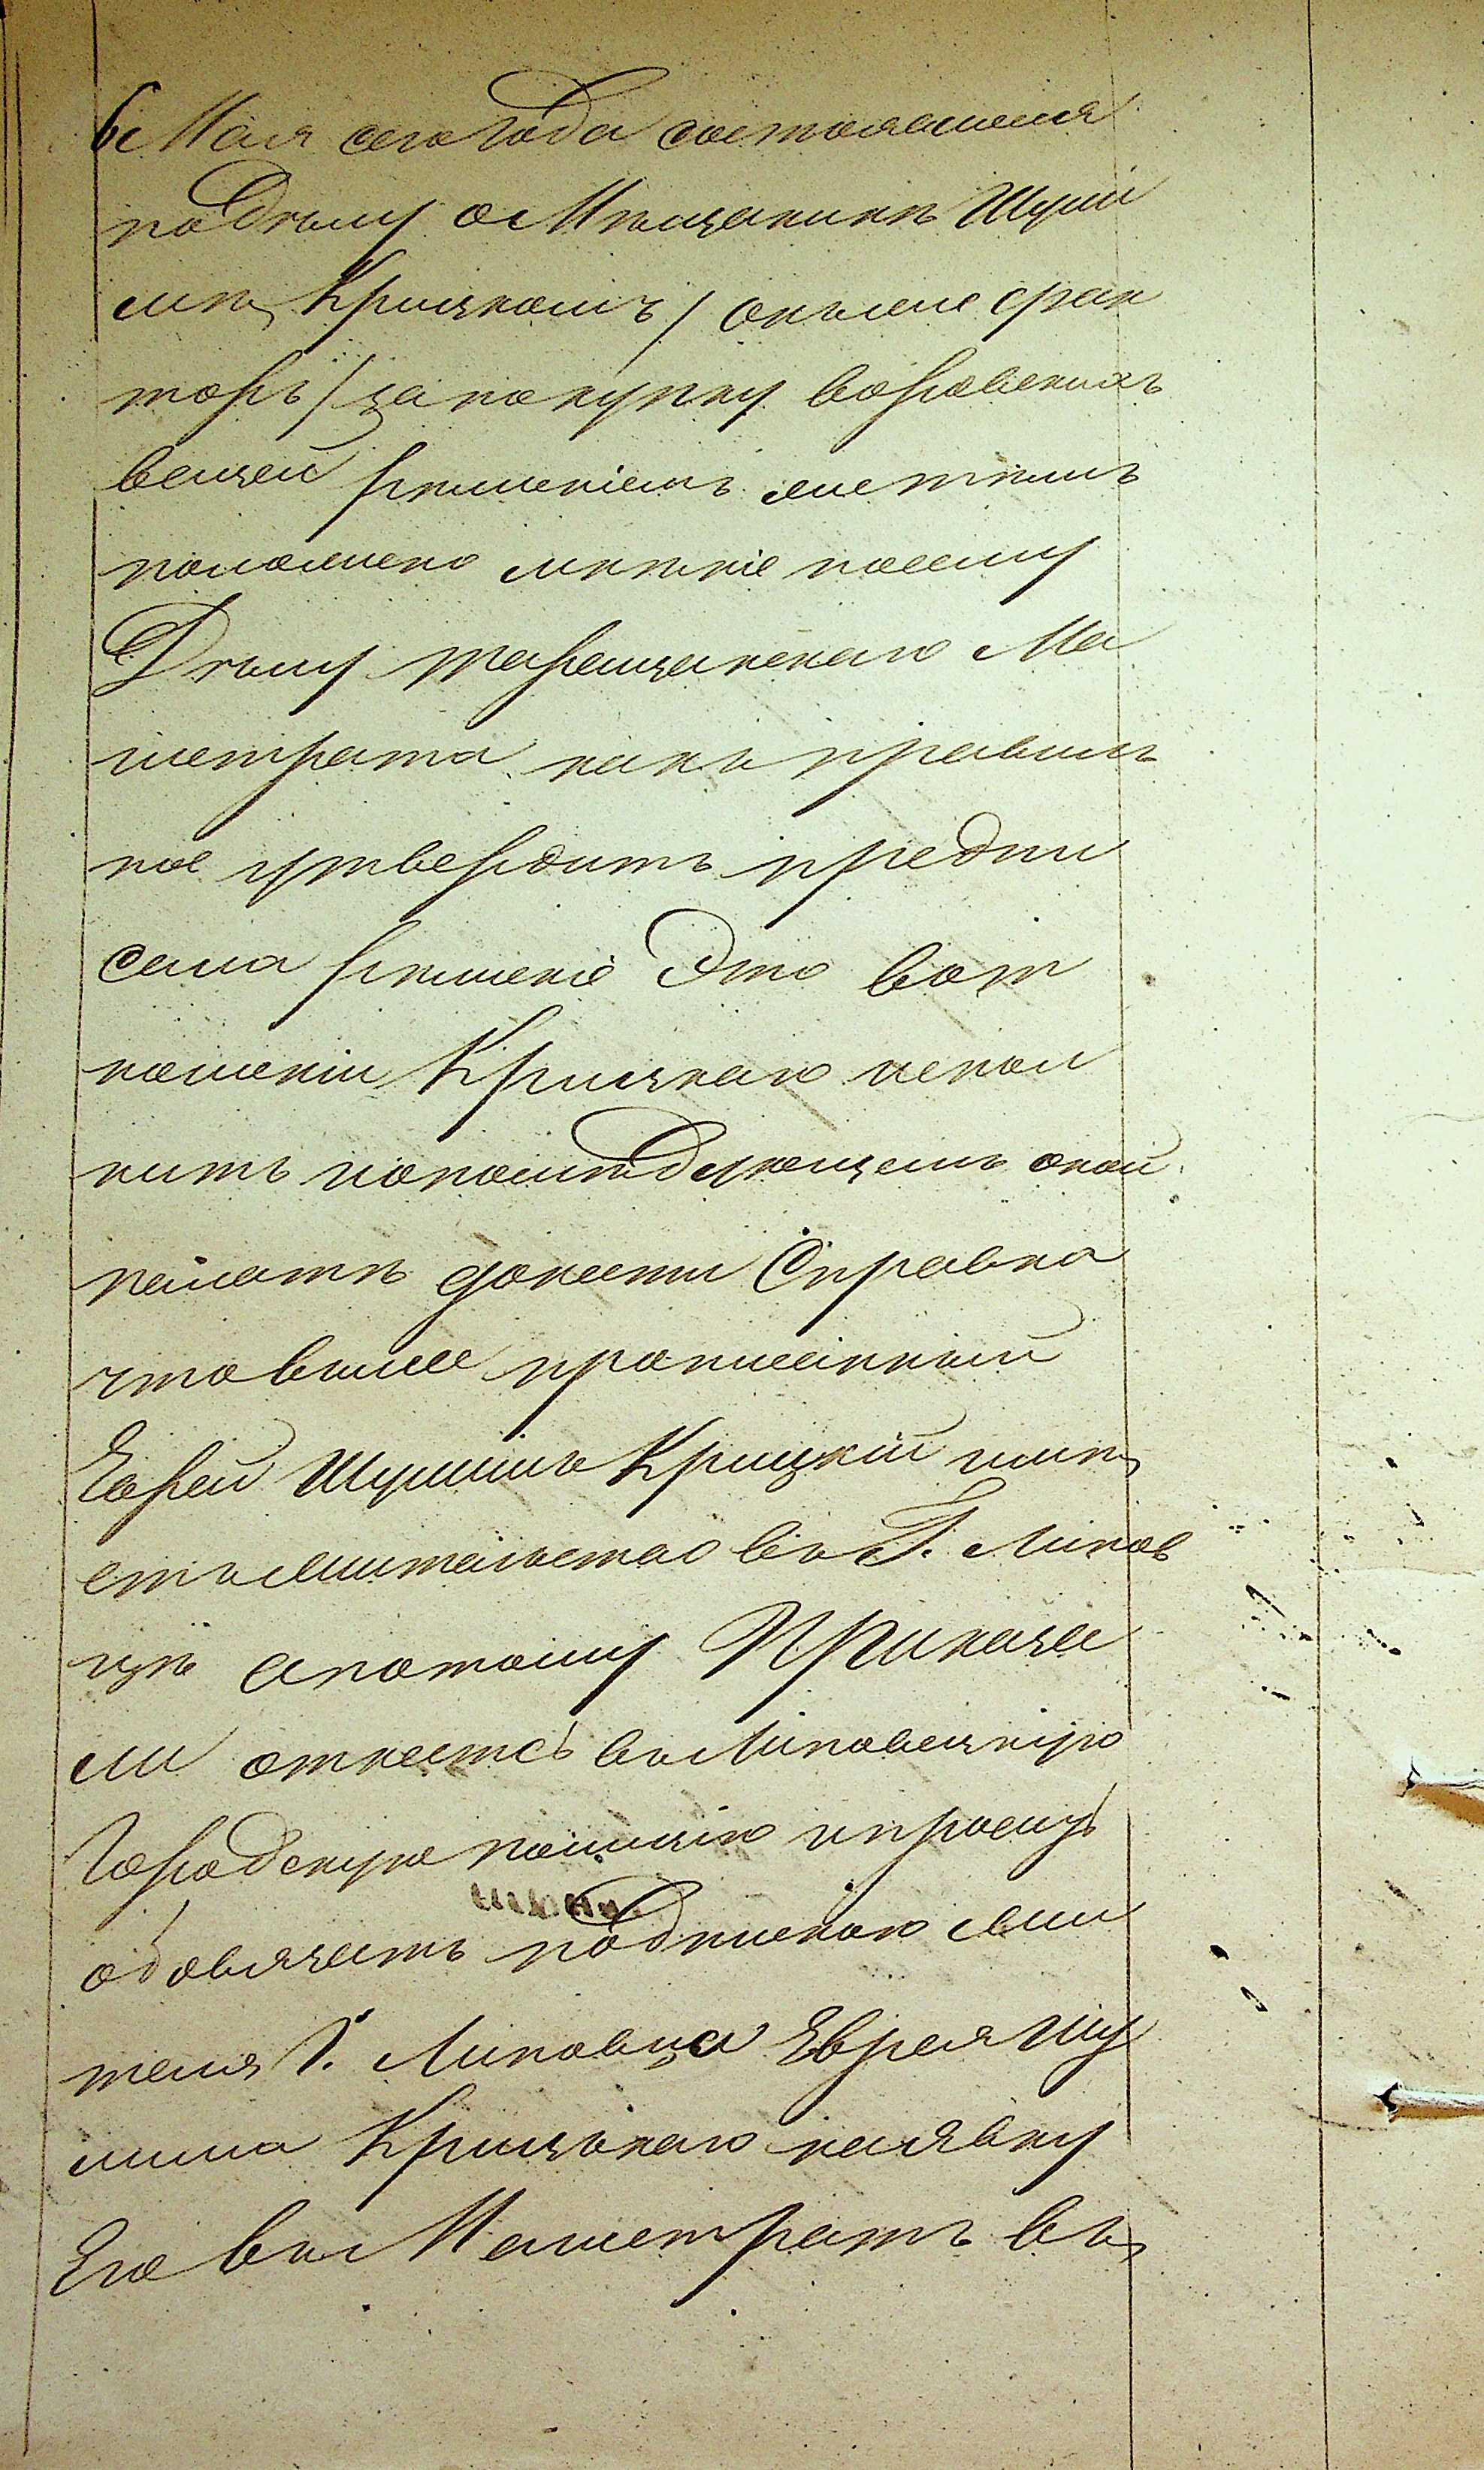 6 Мая сего года состоявшемся
по делу о Мѣщанинѣ Шули
мѣ Крицкомъ / онъ же фак
торъ / за покупку воровскихъ
вещей решеніемъ между темъ
положено мненіе по сему
Делу таращанского Ма
гистрата какъ правиль
ное утвердить предпи
сала решеніе Это в от
ношеніи Крицкаго испол
нить и о послѣдующемъ оной
палатѣ донести Справка
что выше прописанный
Еврей Шулимъ Крицкій имѣ
етъ жительство въ Г. Липов
цѣ а потому Приказа
ли отнестсь въ Липовецкую
Городскую полицію и просить
обовязать подпискою жи
теля Г. Липовца Еврея Шу
лима Крицькаго на явку
Его въ Магистратъ въ